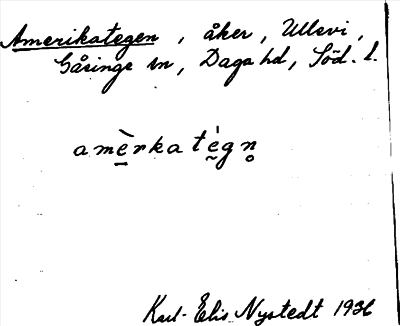 Amerikategen, åker, Ullevi,
Gåsinge sn, Daga hd, Söd. l.
amè̱rkatḛ́gn̥
Karl-Elis Nystedt 1936